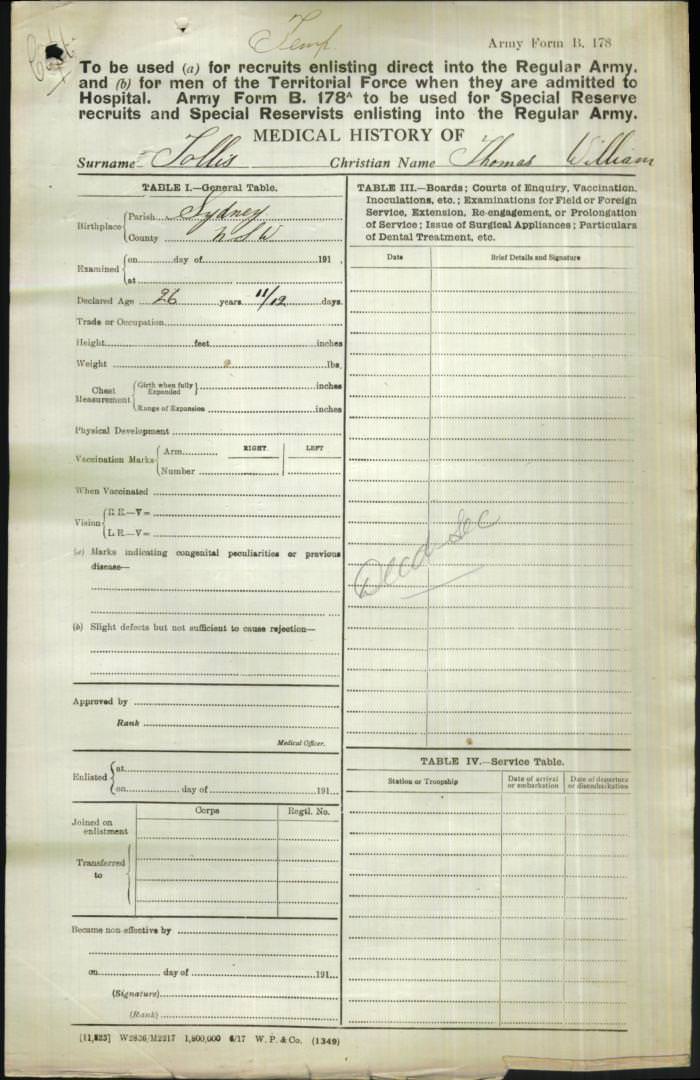 Temp.
Army Form B. 178
To be used (a) for recruits enlisting direct into the Regular Army,
and (b) for men of the Territorial Force when they are admitted to
Hospital. Army Form B. 178A to be used for Special Reserve
recruits and Special Reservists enlisting into the Regular Army.
MEDICAL HISTORY OF
Surname Tollis Christian Name Thomas William
TABLE I.—General Table.
Birthplace Parish Sydney
County NSW
Examined on day of 191
at
Declared Age 26 years 11/12 days.
Trade or Occupation
Height feet inches
Weight lbs.
Chest Measurement Girth when fully Expanded inches
Range of Expansion inches
Physical Development
Vaccination Marks Arm RIGHT. LEFT
Number
When Vaccinated
Vision R.E.—V=
L.E.—V=
(a) Marks indicating congenital peculiarities or previous
disease—
(b) Slight defects but not sufficient to cause rejection—
Approved by
Rank
Medical Officer.
Enlisted at
on day of 191
Corps Regtl. No.
Joined on
enlistment
Transferred
to
Became non-effective by
on day of 191
(Signature)
(Rank)
TABLE III.—Boards; Courts of Enquiry, Vaccination,
Inoculations, etc.; Examinations for Field or Foreign
Service, Extension, Re-engagement, or Prolongation
of Service; Issue of Surgical Appliances; Particulars
of Dental Treatment, etc.
Date Brief Details and Signature
Decd Sec
TABLE IV.—Service Table.
Station or Troopship Date of arrival or embarkation Date of departure or disembarkation
[11,823] W2836/M2217 1,800,000 6/17 W. P. & Co. (1349)